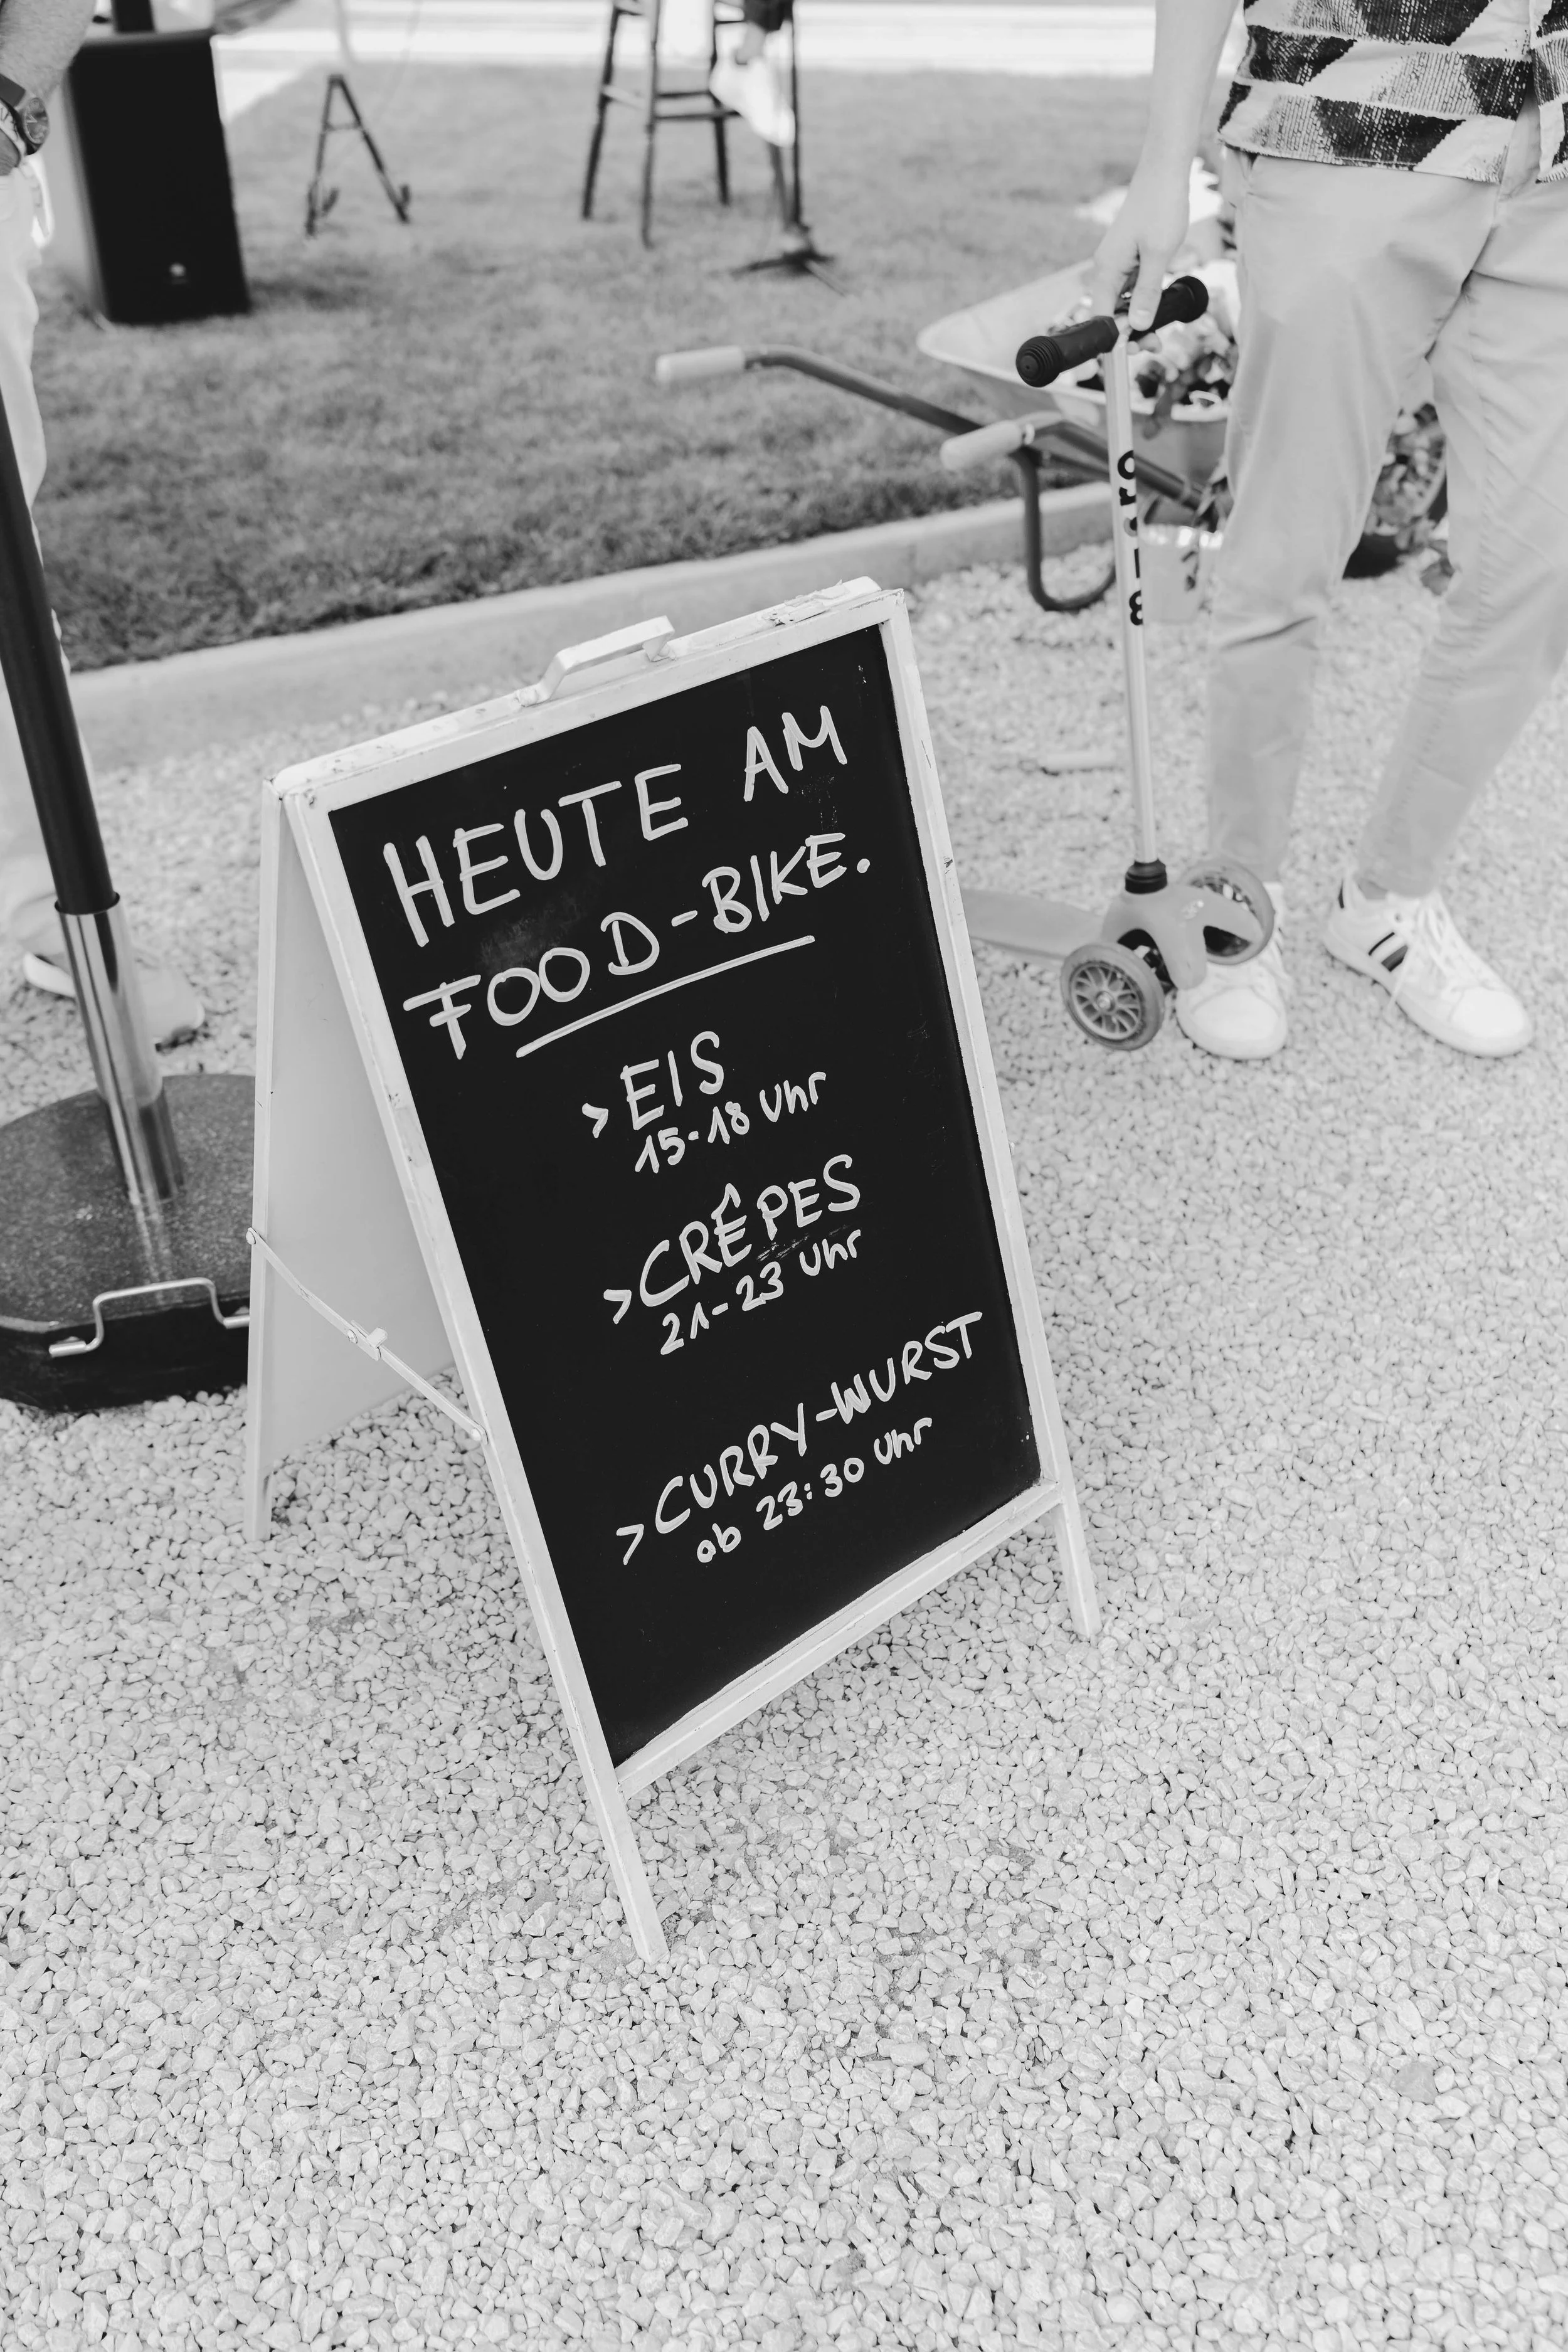 HEUTE AM
FOOD-BIKE.
> EIS
15-18 Uhr
> CRÊPES
21-23 Uhr
> CURRY-WURST
ab 23:30 Uhr